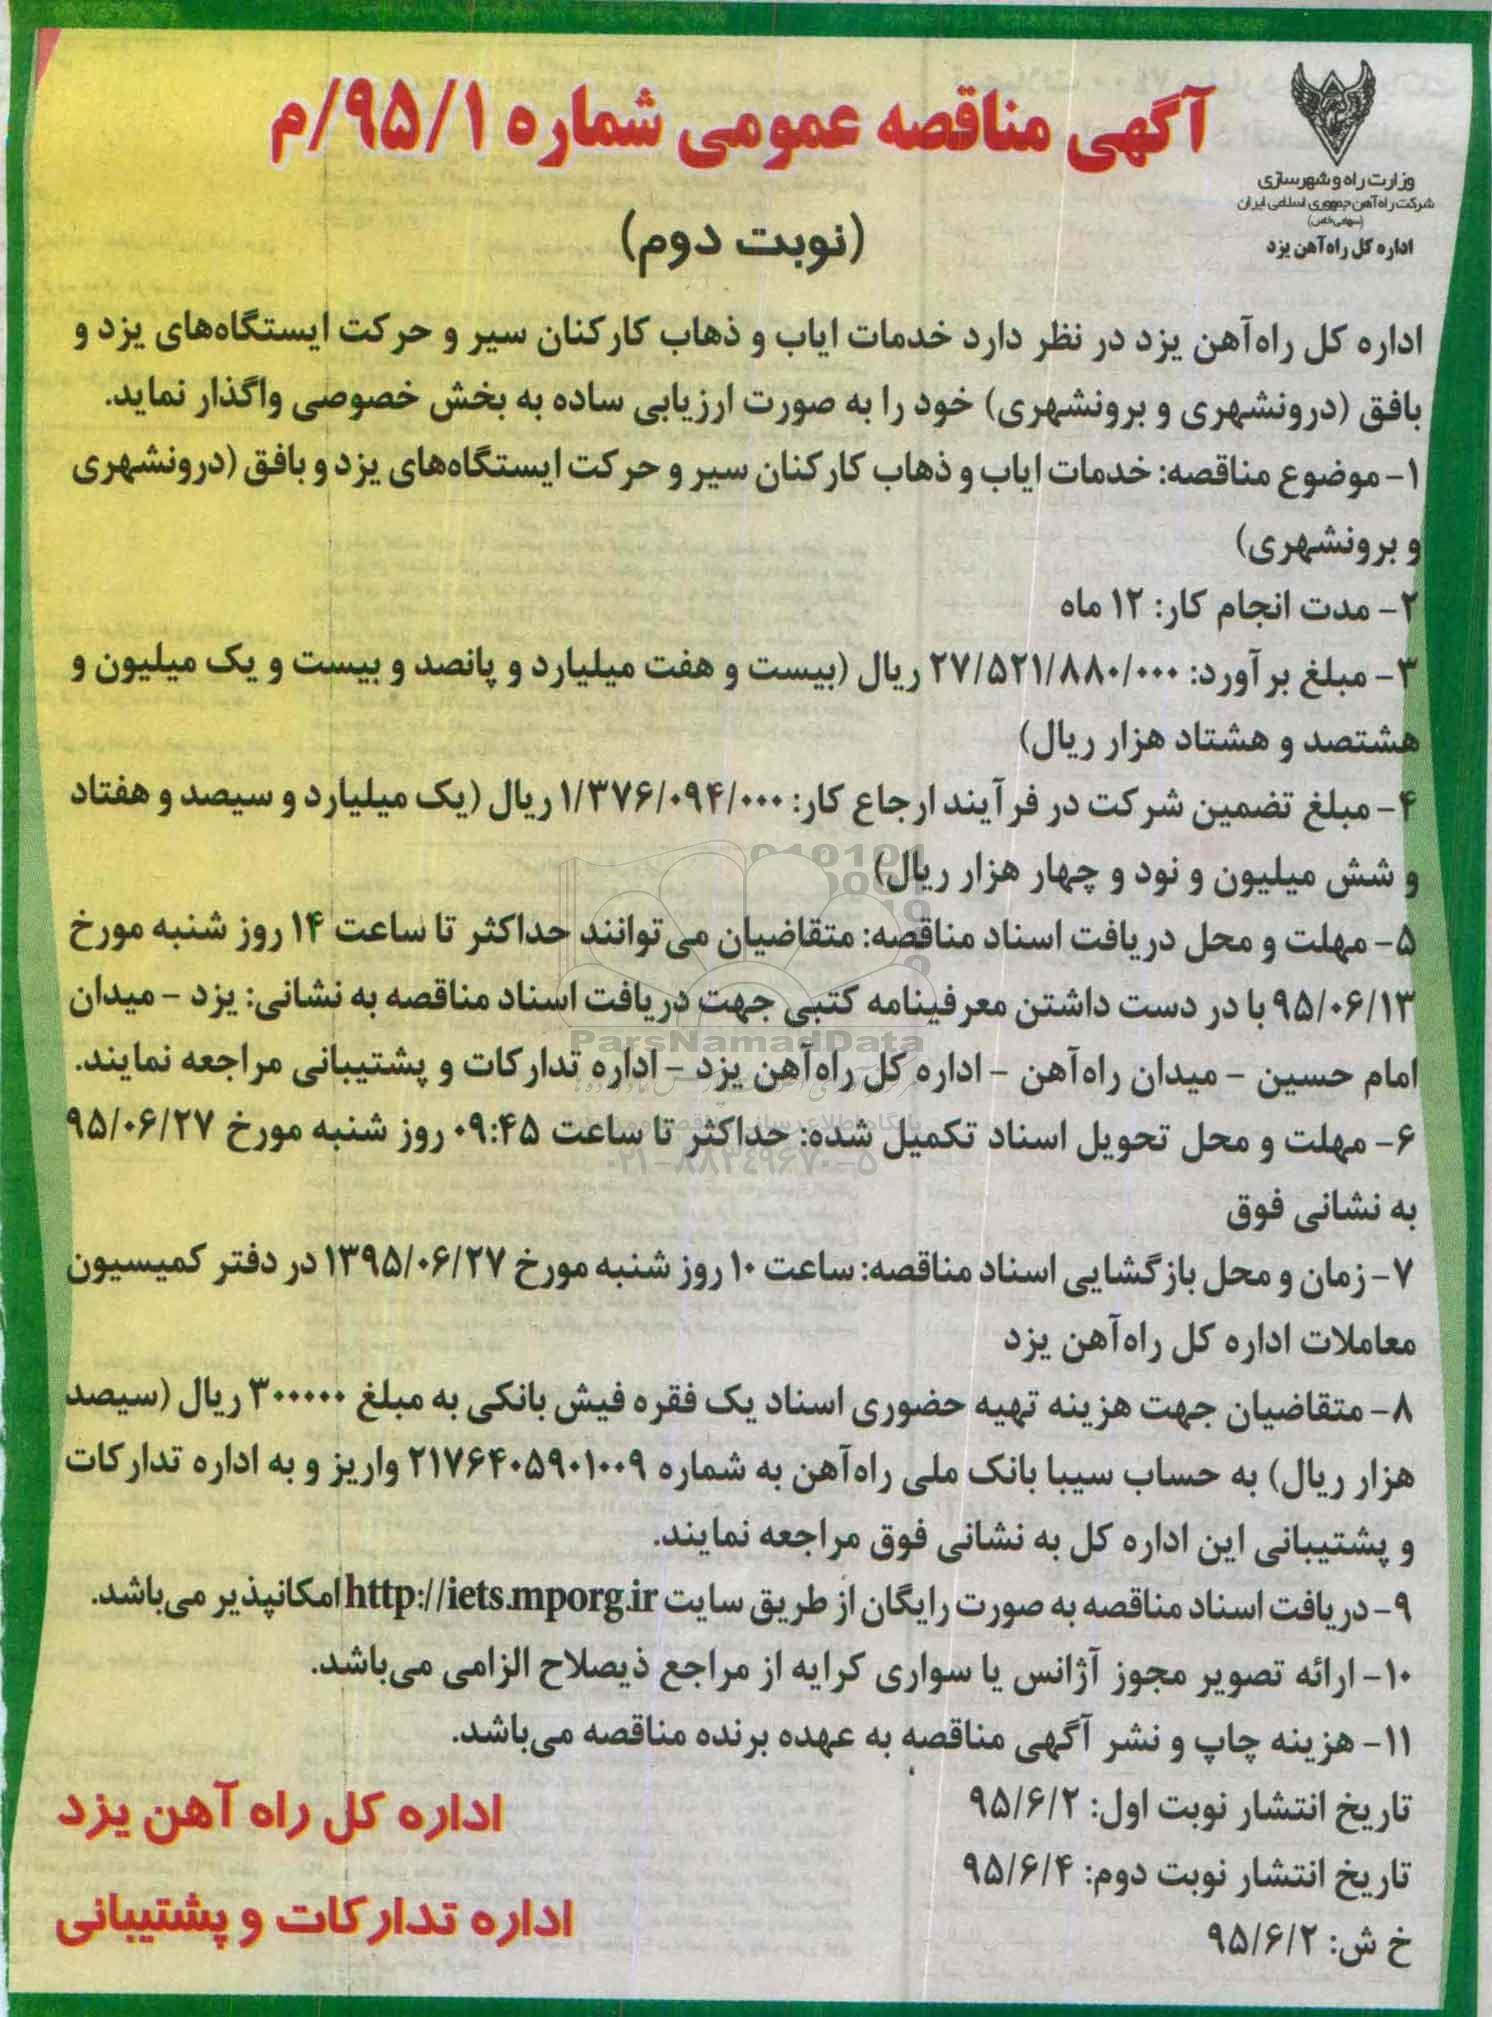 آگهی مناقصه عمومی شماره ۹۵/۱/م
وزارت راه و شهرسازی
شرکت راه‌آهن جمهوری اسلامی ایران
(سهامی خاص)
اداره کل راه‌آهن یزد
(نوبت دوم)
اداره کل راه‌آهن یزد در نظر دارد خدمات ایاب و ذهاب کارکنان سیر و حرکت ایستگاه‌های یزد و
بافق (درونشهری و برونشهری) خود را به صورت ارزیابی ساده به بخش خصوصی واگذار نماید.
۱- موضوع مناقصه: خدمات ایاب و ذهاب کارکنان سیر و حرکت ایستگاه‌های یزد و بافق (درونشهری
و برونشهری)
۲- مدت انجام کار: ۱۲ ماه
۳- مبلغ برآورد: ۲۷/۵۲۱/۸۸۰/۰۰۰ ریال (بیست و هفت میلیارد و پانصد و بیست و یک میلیون و
هشتصد و هشتاد هزار ریال)
۴- مبلغ تضمین شرکت در فرآیند ارجاع کار: ۱/۳۷۶/۰۹۴/۰۰۰ ریال (یک میلیارد و سیصد و هفتاد
و شش میلیون و نود و چهار هزار ریال)
۵- مهلت و محل دریافت اسناد مناقصه: متقاضیان می‌توانند حداکثر تا ساعت ۱۴ روز شنبه مورخ
۹۵/۰۶/۱۳ با در دست داشتن معرفینامه کتبی جهت دریافت اسناد مناقصه به نشانی: یزد - میدان
امام حسین - میدان راه‌آهن - اداره کل راه‌آهن یزد - اداره تدارکات و پشتیبانی مراجعه نمایند.
۶- مهلت و محل تحویل اسناد تکمیل شده: حداکثر تا ساعت ۰۹:۴۵ روز شنبه مورخ ۹۵/۰۶/۲۷
به نشانی فوق
۷- زمان و محل بازگشایی اسناد مناقصه: ساعت ۱۰ روز شنبه مورخ ۱۳۹۵/۰۶/۲۷ در دفتر کمیسیون
معاملات اداره کل راه‌آهن یزد
۸- متقاضیان جهت هزینه تهیه حضوری اسناد یک فقره فیش بانکی به مبلغ ۳۰۰۰۰۰ ریال (سیصد
هزار ریال) به حساب سیبا بانک ملی راه‌آهن به شماره ۲۱۷۶۴۰۵۹۰۱۰۰۹ واریز و به اداره تدارکات
و پشتیبانی این اداره کل به نشانی فوق مراجعه نمایند.
۹- دریافت اسناد مناقصه به صورت رایگان از طریق سایت http://iets.mporg.ir امکانپذیر می‌باشد.
۱۰- ارائه تصویر مجوز آژانس یا سواری کرایه از مراجع ذیصلاح الزامی می‌باشد.
۱۱- هزینه چاپ و نشر آگهی مناقصه به عهده برنده مناقصه می‌باشد.
تاریخ انتشار نوبت اول: ۹۵/۶/۲
تاریخ انتشار نوبت دوم: ۹۵/۶/۴
خ ش: ۹۵/۶/۲
اداره کل راه آهن یزد
اداره تدارکات و پشتیبانی
ParsNamadData
۰۲۱-۸۸۳۴۹۶۷۰-۵